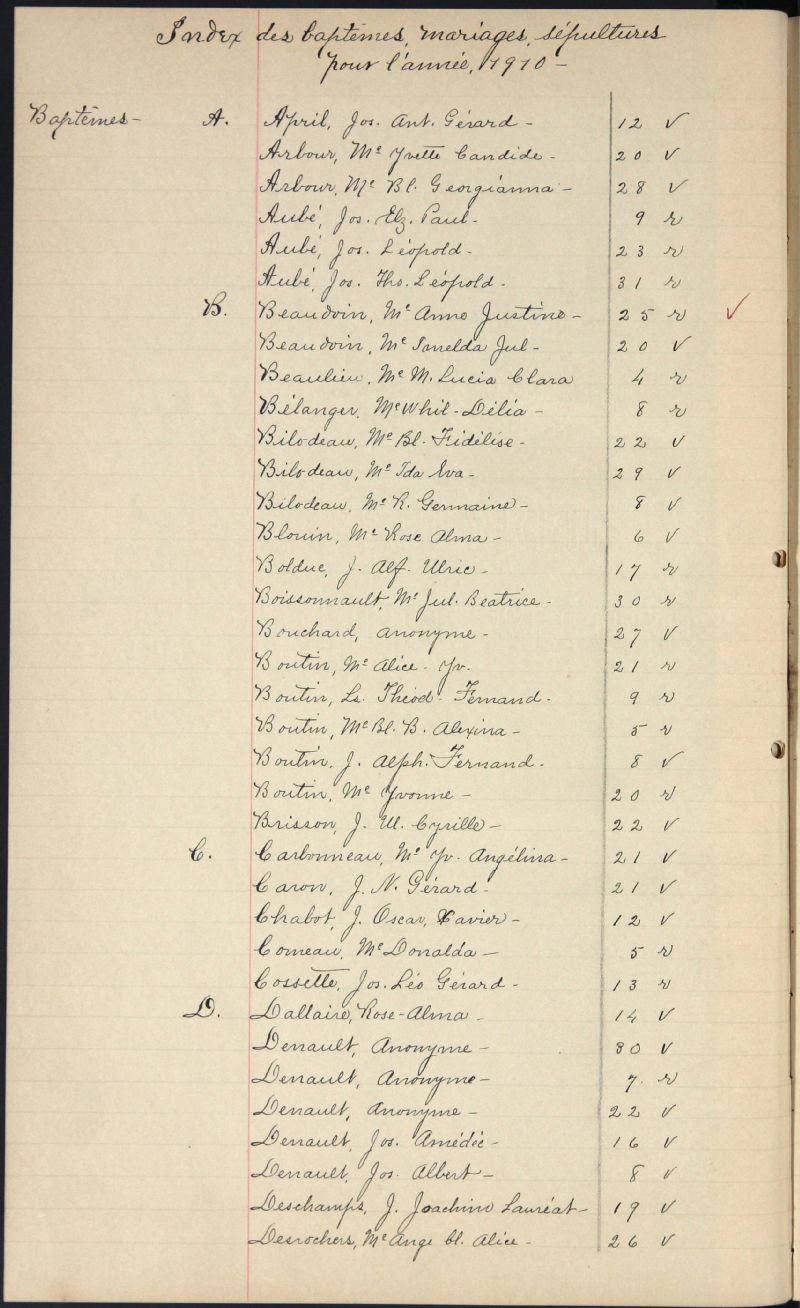 Index des baptêmes, mariages, sépultures
pour l'année, 1910 -
Baptêmes - A. April, Jos. Ant. Gérard - 12 v
Arbour, Me Yvette Candide - 20 v
Arbour, Me Bl. Georgianna - 28 v
Aubé, Jos. Elz. Paul - 9 r
Aubé, Jos. Léopold - 23 r
Aubé, Jos. Ths. Léopold - 31 r
B. Beaudoin, Me Anne Justine - 25 r ✓
Beaudoin, Me Imelda Jul - 20 v
Beaulieu, Me M. Lucia Clara 4 r
Bélanger, Me Whil - Délia - 8 r
Bilodeau, Me Bl. Fidélise - 22 v
Bilodeau, Me Ida Eva - 29 v
Bilodeau, Me R. Germaine - 8 v
Blouin, Me Rose Alma - 6 v
Bolduc, J. Alf. Ulric - 17 r
Boissonnault, Me Jul. Beatrice - 30 r
Bouchard, anonyme - 27 v
Boutin, Me Alice - Yv. 21 r
Boutin, Ls. Théod - Fernand - 9 r
Boutin, Me Bl. B. Alexina - 5 r
Boutin, J. Alph. Fernand - 8 v
Boutin, Me Yvonne - 20 r
Brisson, J. W. Cyrille - 22 v
C. Carbonneau, Me Yv. Angélina - 21 v
Caron, J. N. Gérard - 21 v
Chabot, J. Oscar, Xavier - 12 v
Comeau, Me Donalda - 5 r
Cossette, Jos. Léo Gérard - 13 r
D. Dallaire, Rose-Alma - 14 v
Denault, Anonyme - 30 v
Denault, Anonyme - 7 r
Denault, Anonyme - 22 v
Denault, Jos. Amédée - 16 v
Denault, Jos. Albert - 8 v
Deschamps, J. Joachim Lauréat - 19 v
Desrochers, Me Ange bl. Alice - 26 v